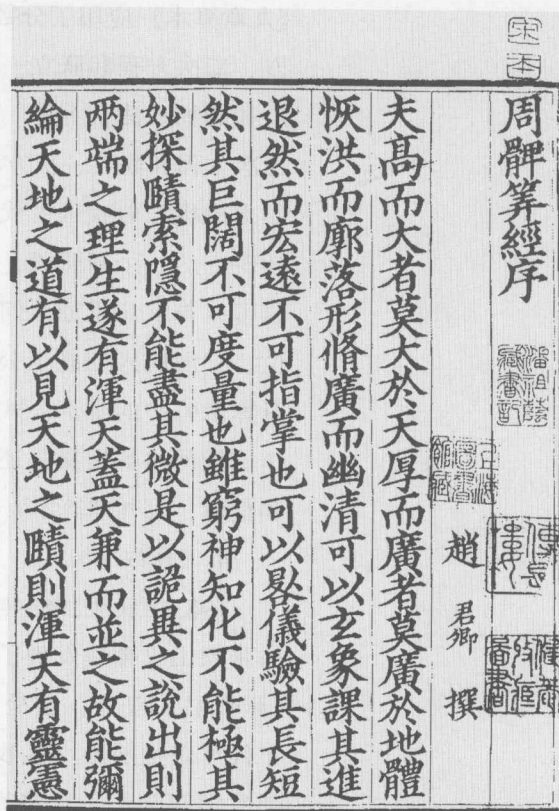 周髀筭經序
趙君卿撰
夫高而大者莫大於天厚而廣者莫廣於地體
恢洪而廓落形脩廣而幽清可以玄象課其進
退然而宏遠不可指掌也可以晷儀驗其長短
然其巨闊不可度量也雖窮神知化不能極其
妙探賾索隱不能盡其微是以詭異之說出則
兩端之理生遂有渾天蓋天兼而並之故能彌
綸天地之道有以見天地之賾則渾天有靈憲
潘祖蔭藏書記
上海圖書館藏